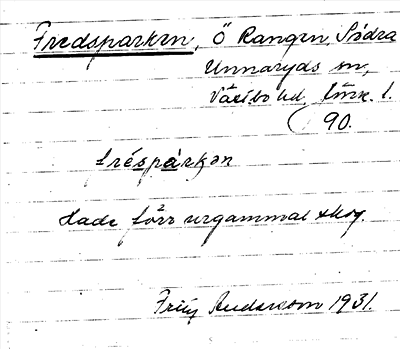 Fredsparken, Ö Rangen, Södra
Unnaryds sn,
Västbo hd, Jönk. l.
90.
fréspàrkən
Hade förr urgammal skog.
Fritz Andersson 1931.